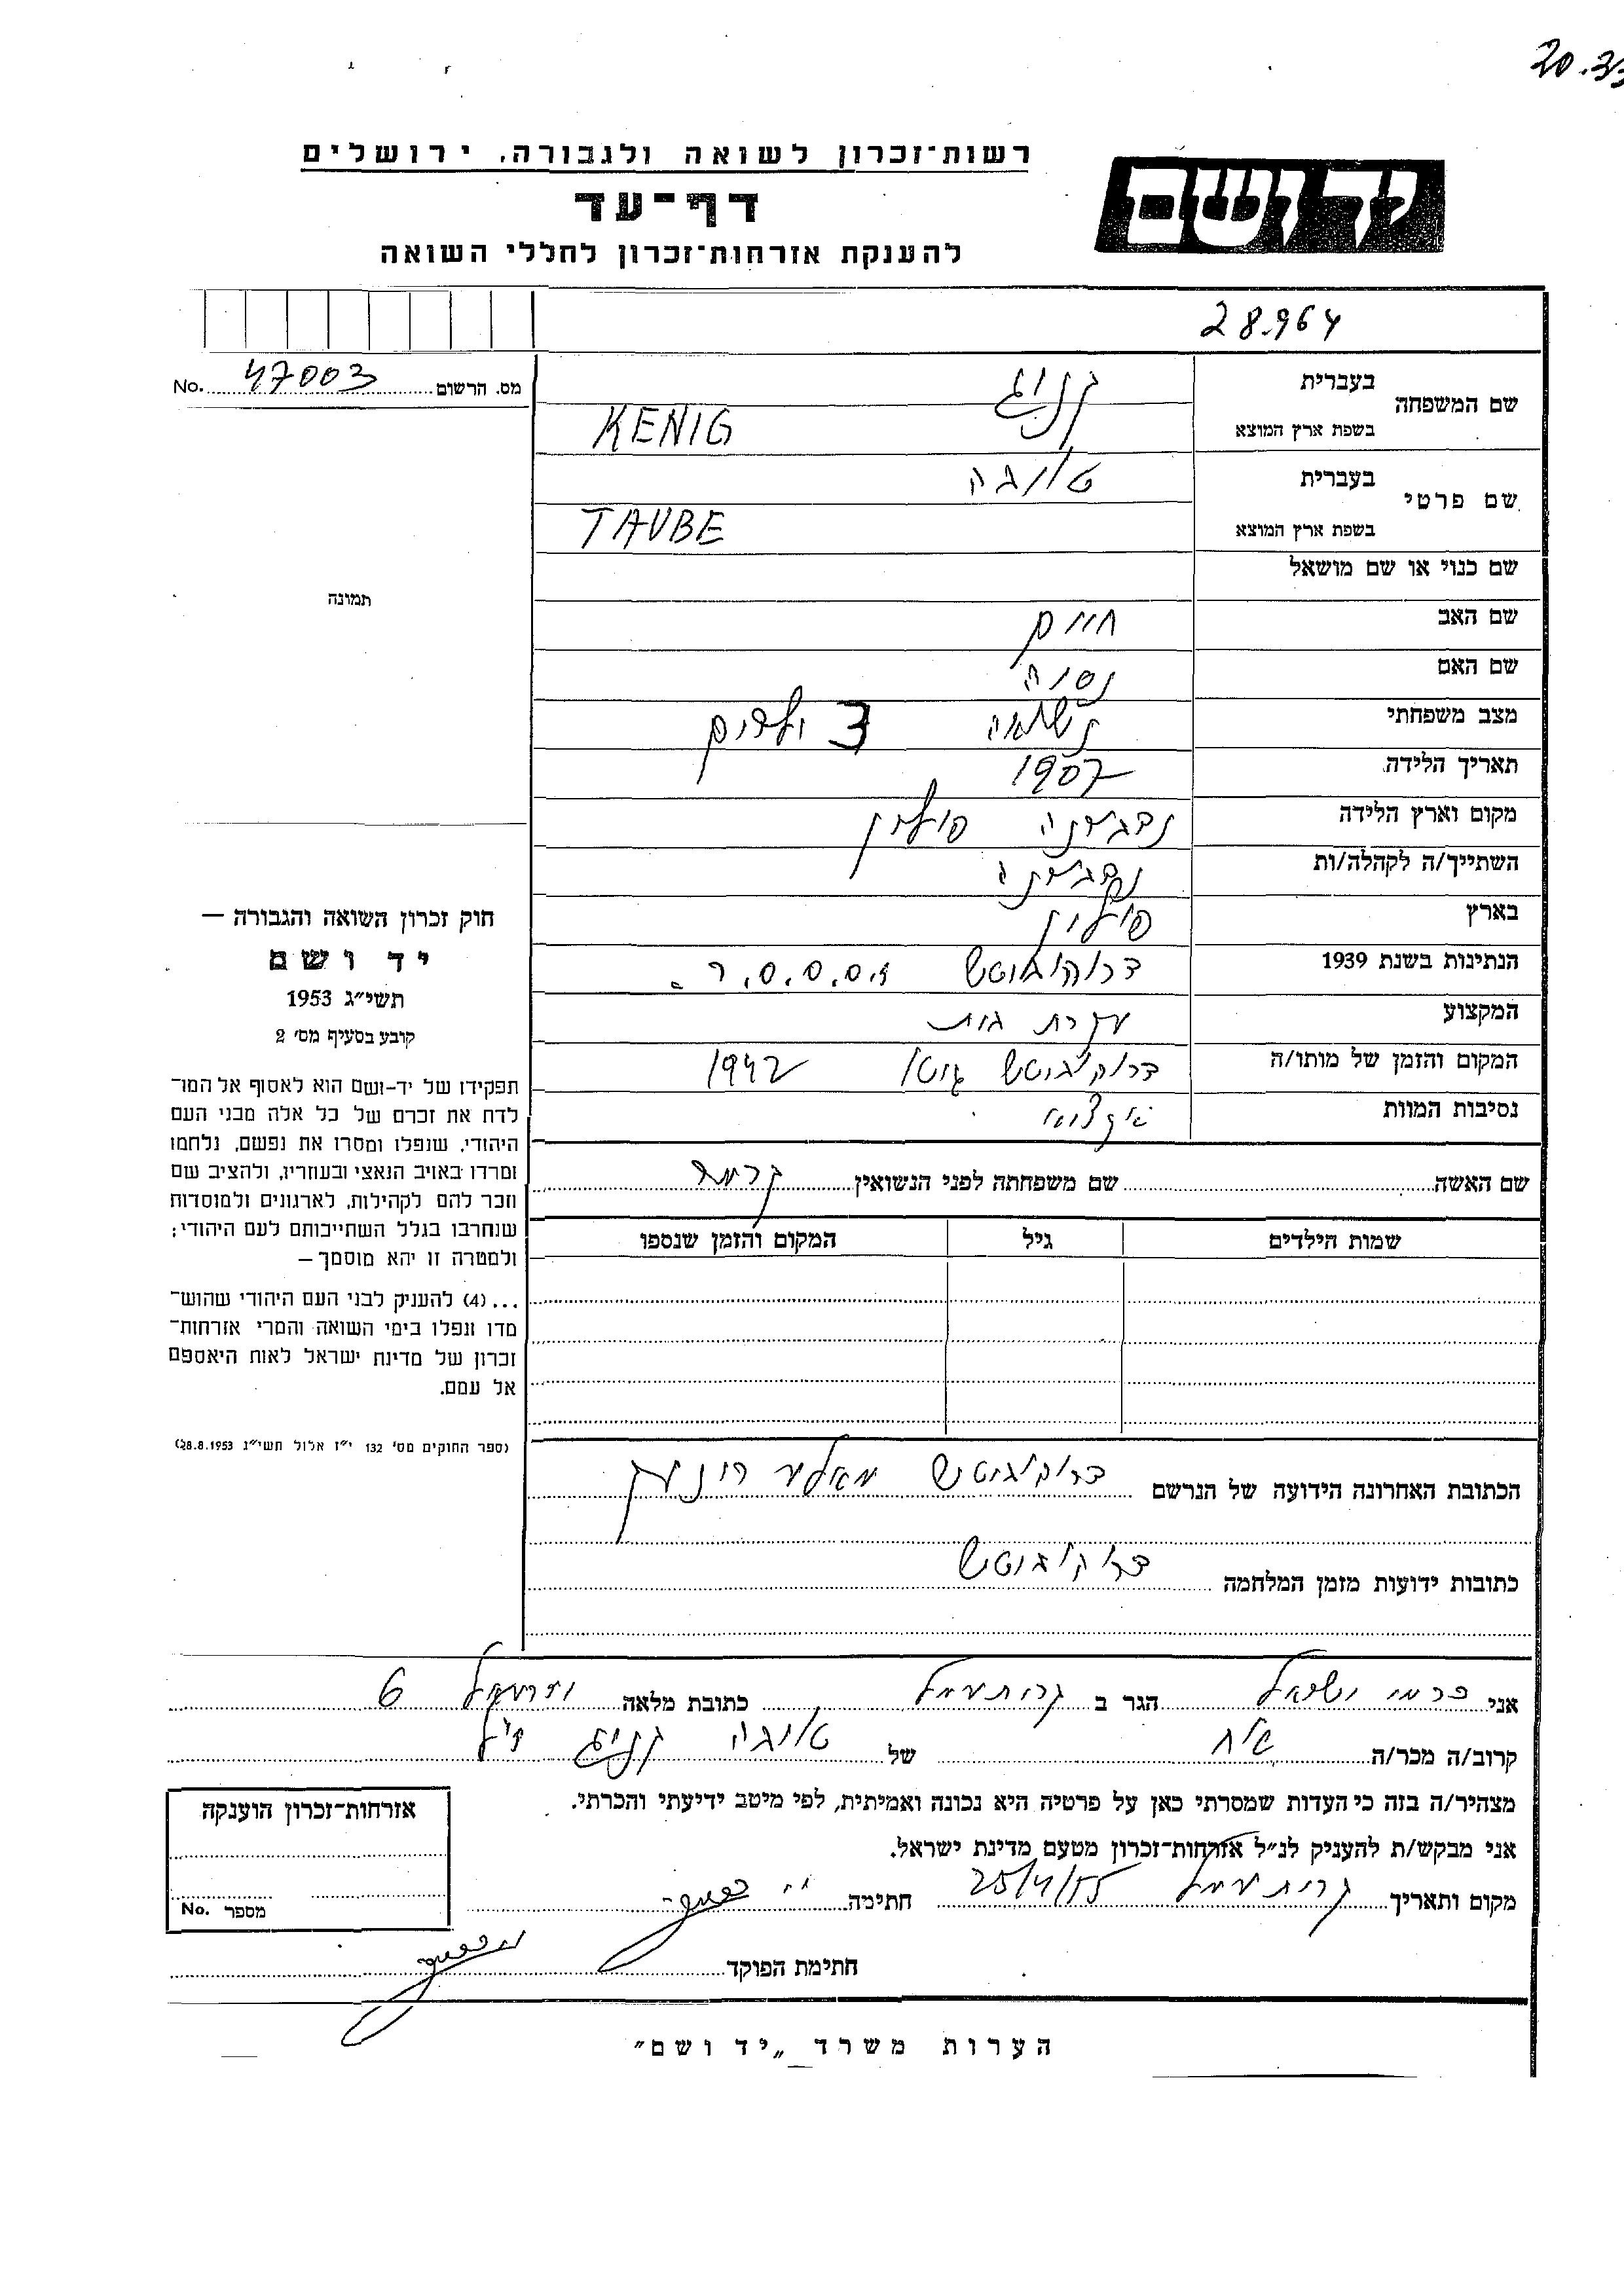 20.33
רשות־זכרון לשואה ולגבורה, ירושלים
יד ושם
דף־עד
להענקת אזרחות־זכרון לחללי השואה
28.964
מס. הרשום 47003 No.
שם המשפחה
בעברית קניג
בשפת ארץ המוצא KENIG
שם פרטי
בעברית טאובה
בשפת ארץ המוצא TAUBE
שם כנוי או שם מושאל
תמונה
שם האב חיים
שם האם נסיה
מצב משפחתי נשואה 3 ילדים
תאריך הלידה 1907
מקום וארץ הלידה פולין
השתייך/ה לקהלה/ות
בארץ פולין
הנתינות בשנת 1939 דרוהוביטש ס.ס.ס.ר.
המקצוע עקרת בית
המקום והזמן של מותו/ה דרוהוביטש גיטו 1942
נסיבות המוות
שם האשה שם משפחתה לפני הנשואין
שמות הילדים גיל המקום והזמן שנספו
חוק זכרון השואה והגבורה —
יד ושם
תשי״ג 1953
קובע בסעיף מס׳ 2
תפקידו של יד-ושם הוא לאסוף אל המו־
לדת את זכרם של כל אלה מבני העם
היהודי, שנפלו ומסרו את נפשם, נלחמו
ומרדו באויב הנאצי ובעוזריו, ולהציב שם
וזכר להם לקהילות, לארגונים ולמוסדות
שנחרבו בגלל השתייכותם לעם היהודי;
ולמטרה זו יהא מוסמך —
... (4) להעניק לבני העם היהודי שהוש־
מדו ונפלו בימי השואה והמרי אזרחות־
זכרון של מדינת ישראל לאות היאספם
אל עמם.
(ספר החוקים מס׳ 132 י״ז אלול תשי״ג 28.8.1953)
הכתובת האחרונה הידועה של הנרשם דרוהוביטש
כתובות ידועות מזמן המלחמה דרוהוביטש
אני כרמי ישראל הגר ב קרית עמל כתובת מלאה 6
קרוב/ה מכר/ה אח של טאובה קניג ז״ל
מצהיר/ה בזה כי העדות שמסרתי כאן על פרטיה היא נכונה ואמיתית, לפי מיטב ידיעתי והכרתי.
אני מבקש/ת להעניק לנ״ל אזרחות־זכרון מטעם מדינת ישראל.
מקום ותאריך קרית עמל 25/4/55 חתימה
חתימת הפוקד
אזרחות־זכרון הוענקה
מספר No.
הערות משרד „יד ושם״